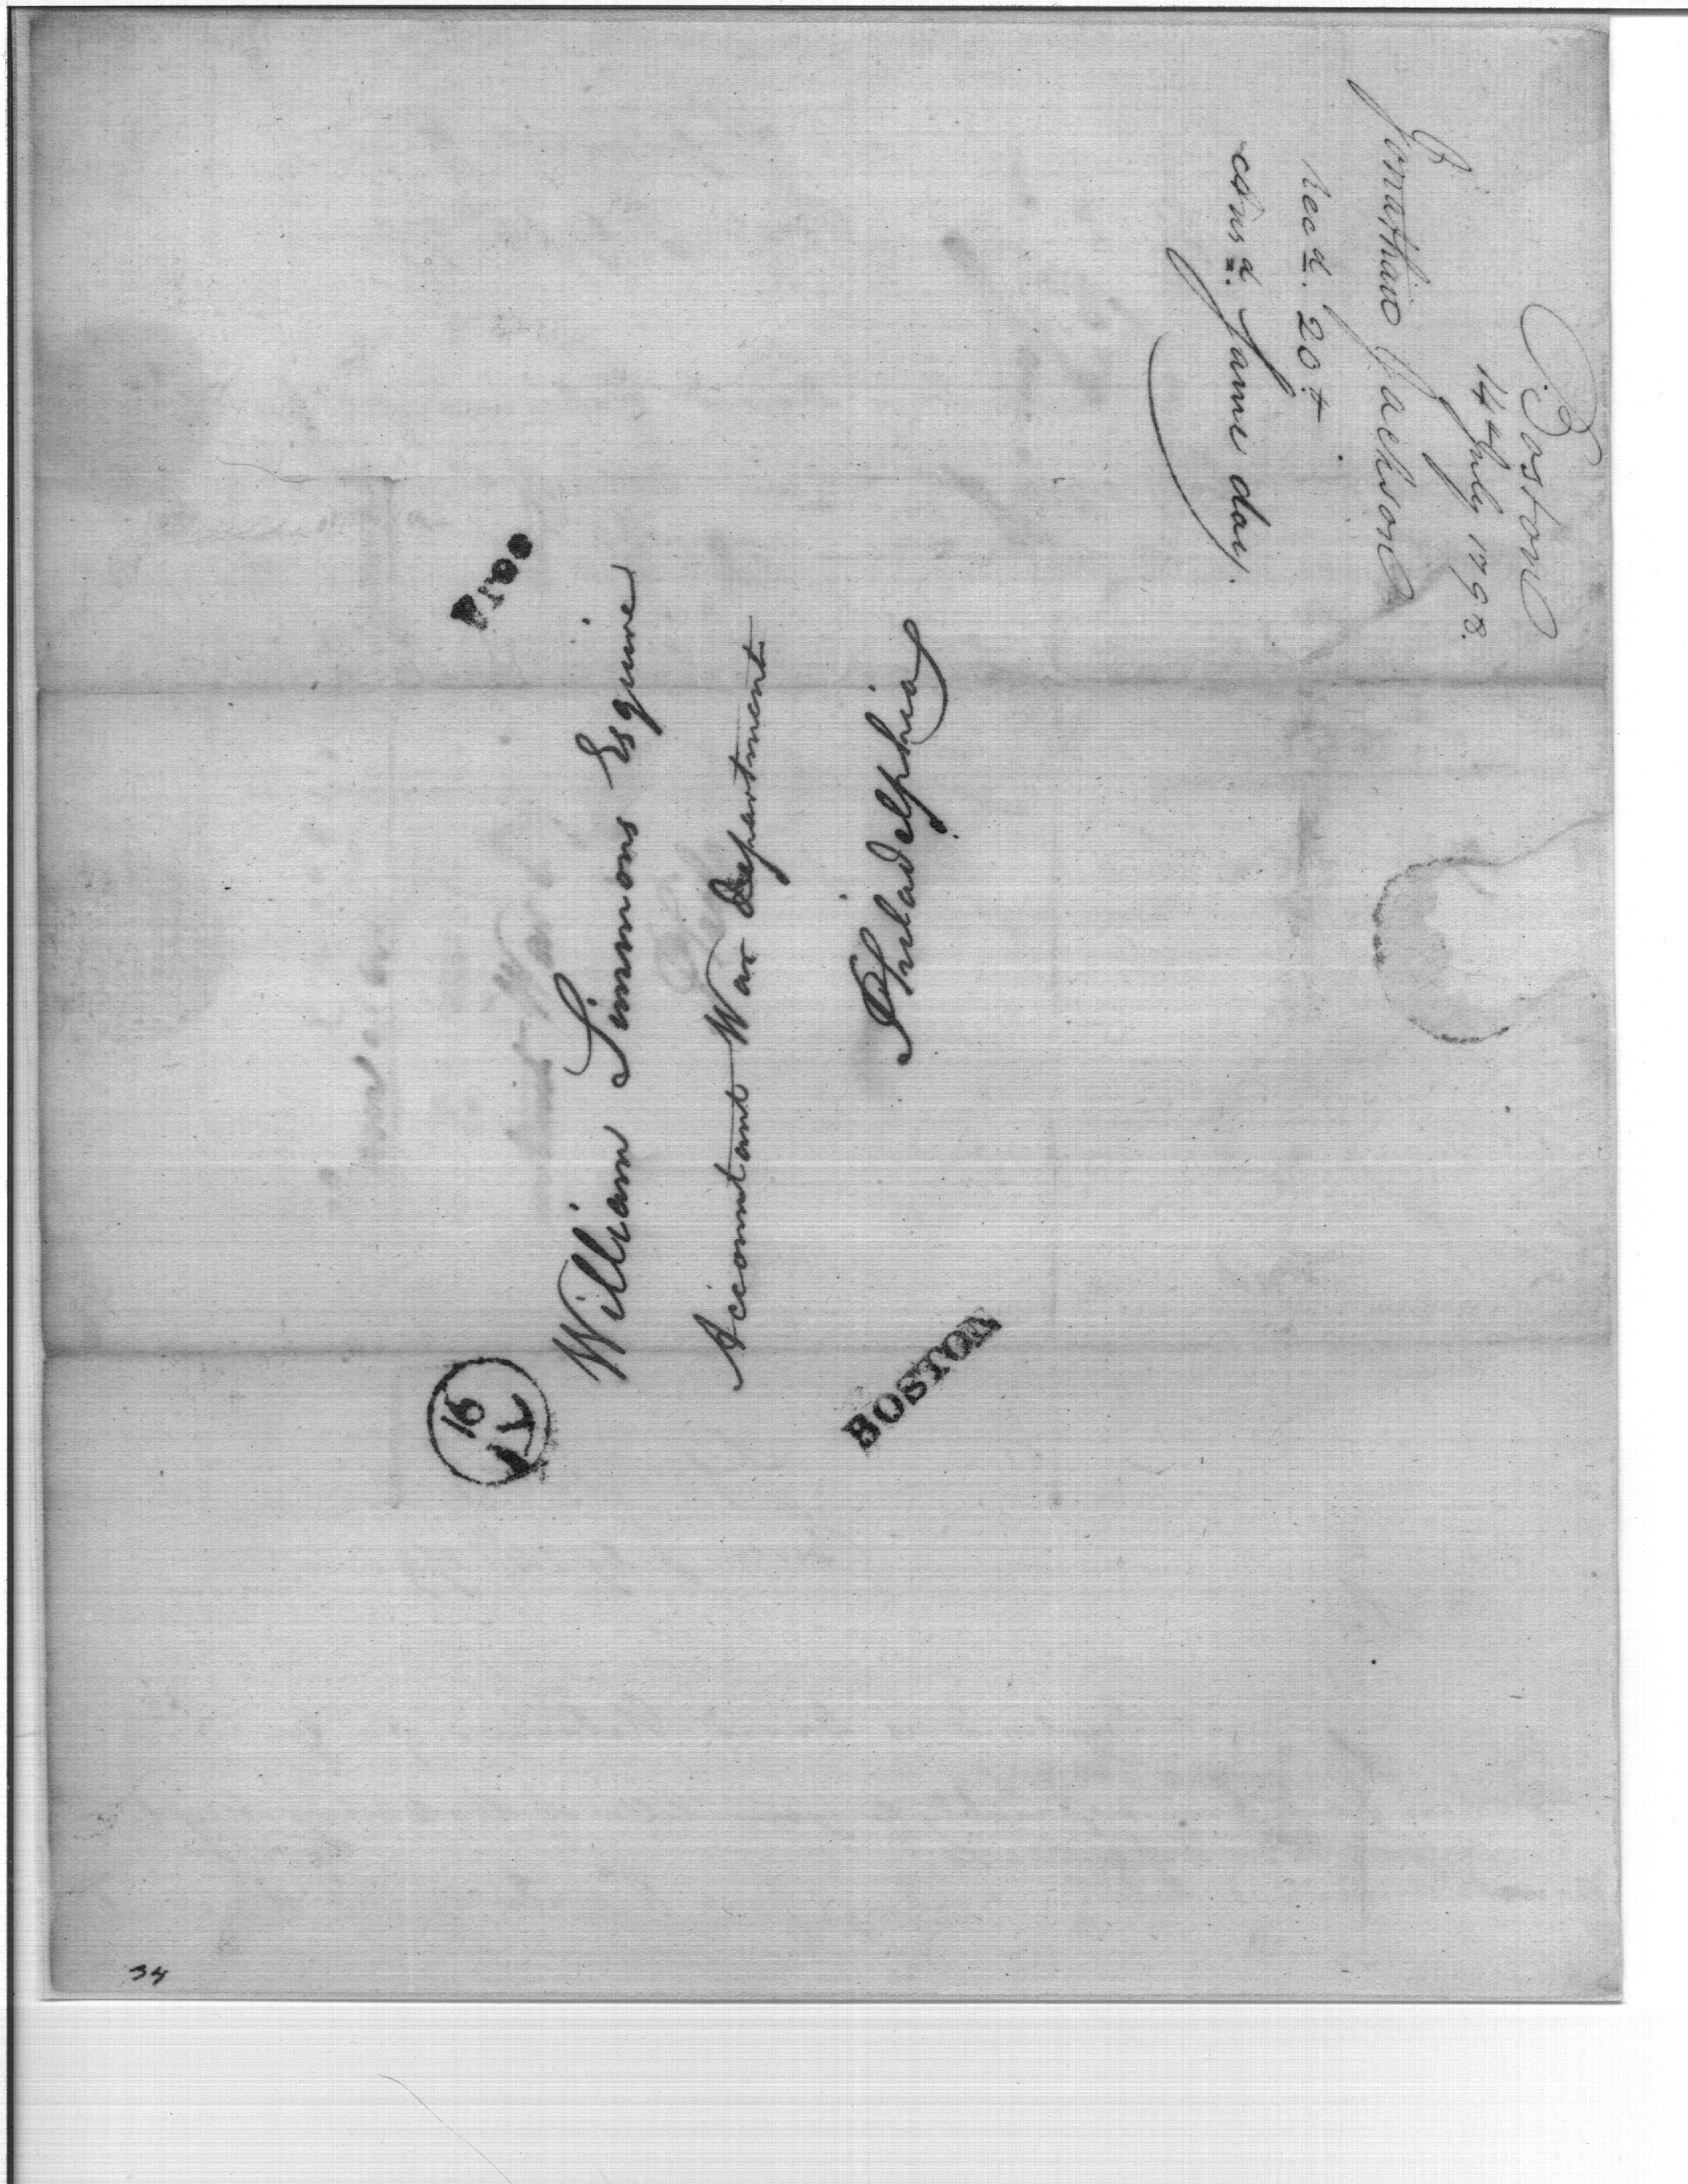 Boston
14 July 1798.
Jonathan Jackson
Recd. 20t
answd. same day.
Free
William Simmons Esquire
Accountant War Department
Philadelphia
16
JY
BOSTON
34